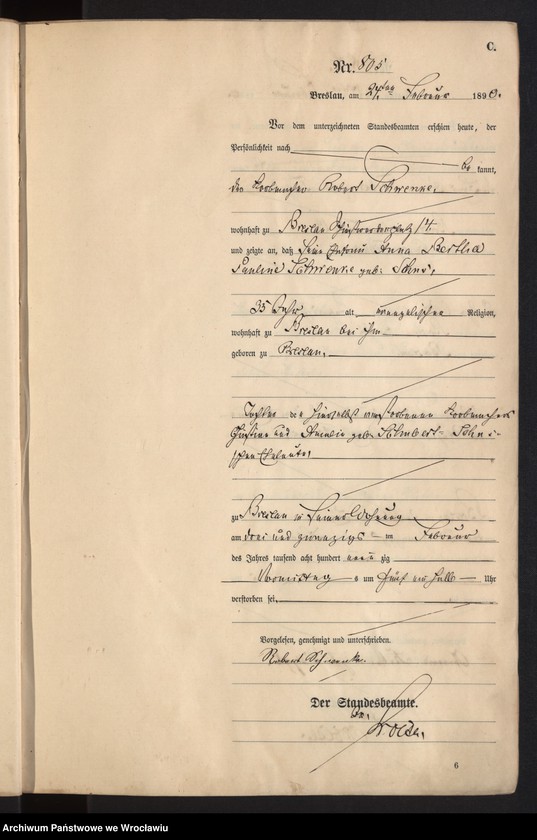 C.
Nr. 805
Breslau, am 24ten Februar 1890.
Vor dem unterzeichneten Standesbeamten erschien heute, der
Persönlichkeit nach
be kannt,
der Korbmacher Robert Schwenke,
wohnhaft zu Breslau 14
und zeigte an, daß seine Ehefrau Anna Bertha
Pauline Schwenke geb:
35 Jahr alt, evangelischer Religion,
wohnhaft zu Breslau bei ihm
geboren zu Breslau,
Tochter der hierselbst verstorbenen Korbmacher
und Amalie geb. Schubert-
schen Eheleute,
zu Breslau in seiner Wohnung
am drei und zwanzigs ten Februar
des Jahres tausend acht hundert neun zig
Vormittag s um fünf ein halb Uhr
verstorben sei.
Vorgelesen, genehmigt und unterschrieben.
Robert Schwenke.
Der Standesbeamte.
6
Archiwum Państwowe we Wrocławiu